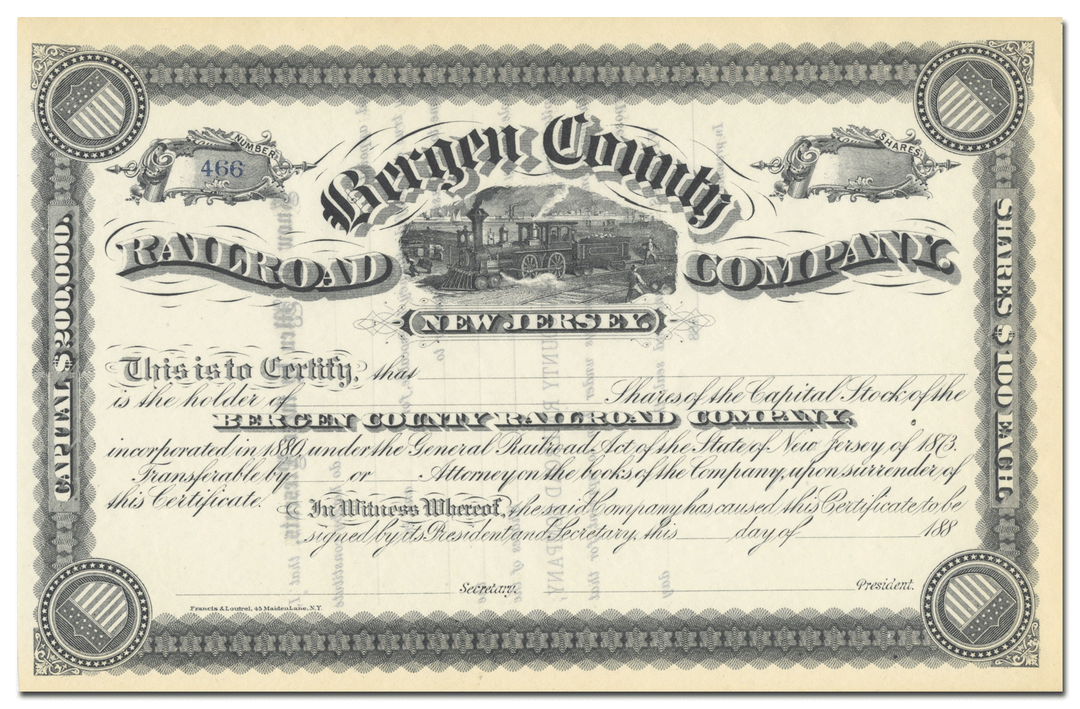 NUMBER
466
SHARES
Bergen County
RAILROAD COMPANY.
NEW JERSEY.
CAPITAL $200,000.
SHARES $100 EACH.
This is to Certify, that
is the holder of Shares of the Capital Stock of the
BERGEN COUNTY RAILROAD COMPANY.
incorporated in 1880, under the General Railroad Act of the State of New Jersey of 1873.
Transferable by or Attorney on the books of the Company, upon surrender of
this Certificate.
In Witness Whereof, the said Company has caused this Certificate to be
signed by its President and Secretary, this day of 188
Secretary. President.
Francis & Loutrel, 45 Maiden Lane, N.Y.